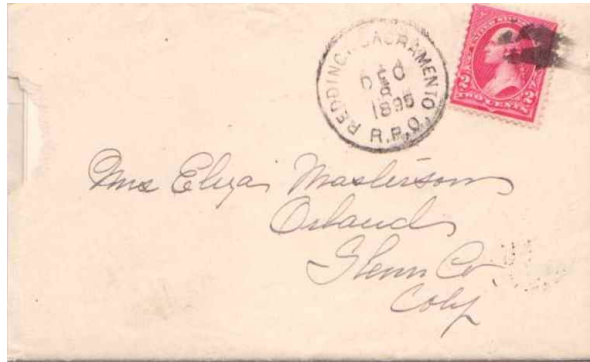 REDDING & SACRAMENTO,
DEC
8
1895
R.P.O.
2 2
TWO CENTS
Mrs Eliza Masterson
Orland
Glenn Co
Caly